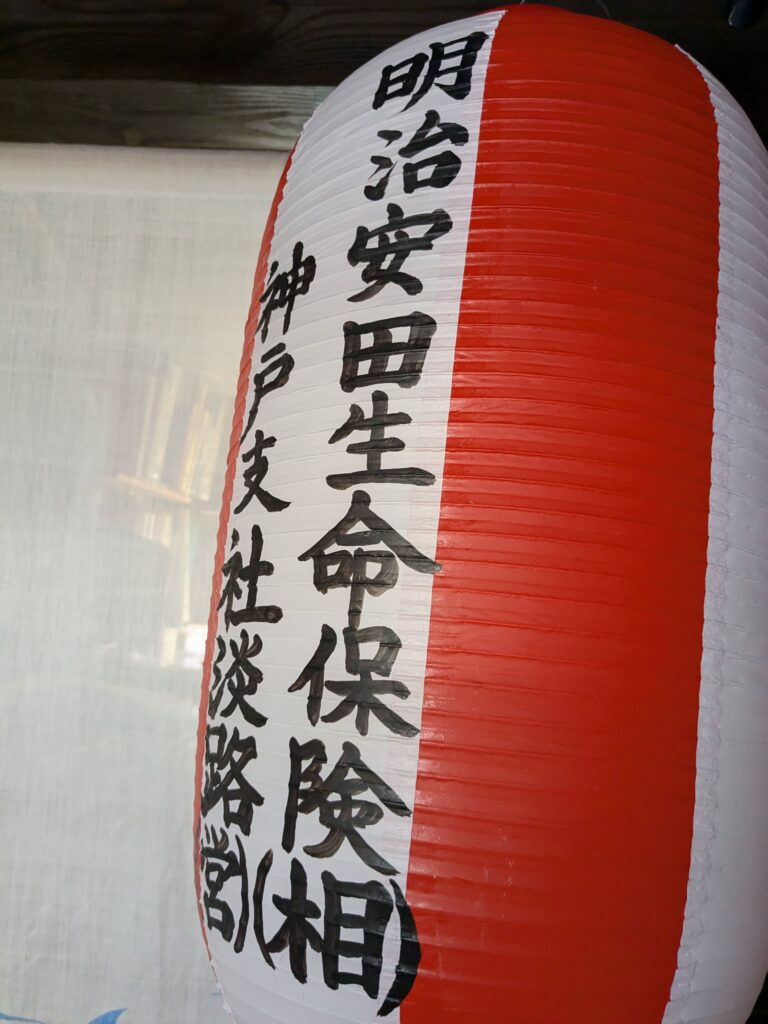 明治安田生命保険(相)
神戸支社淡路営)